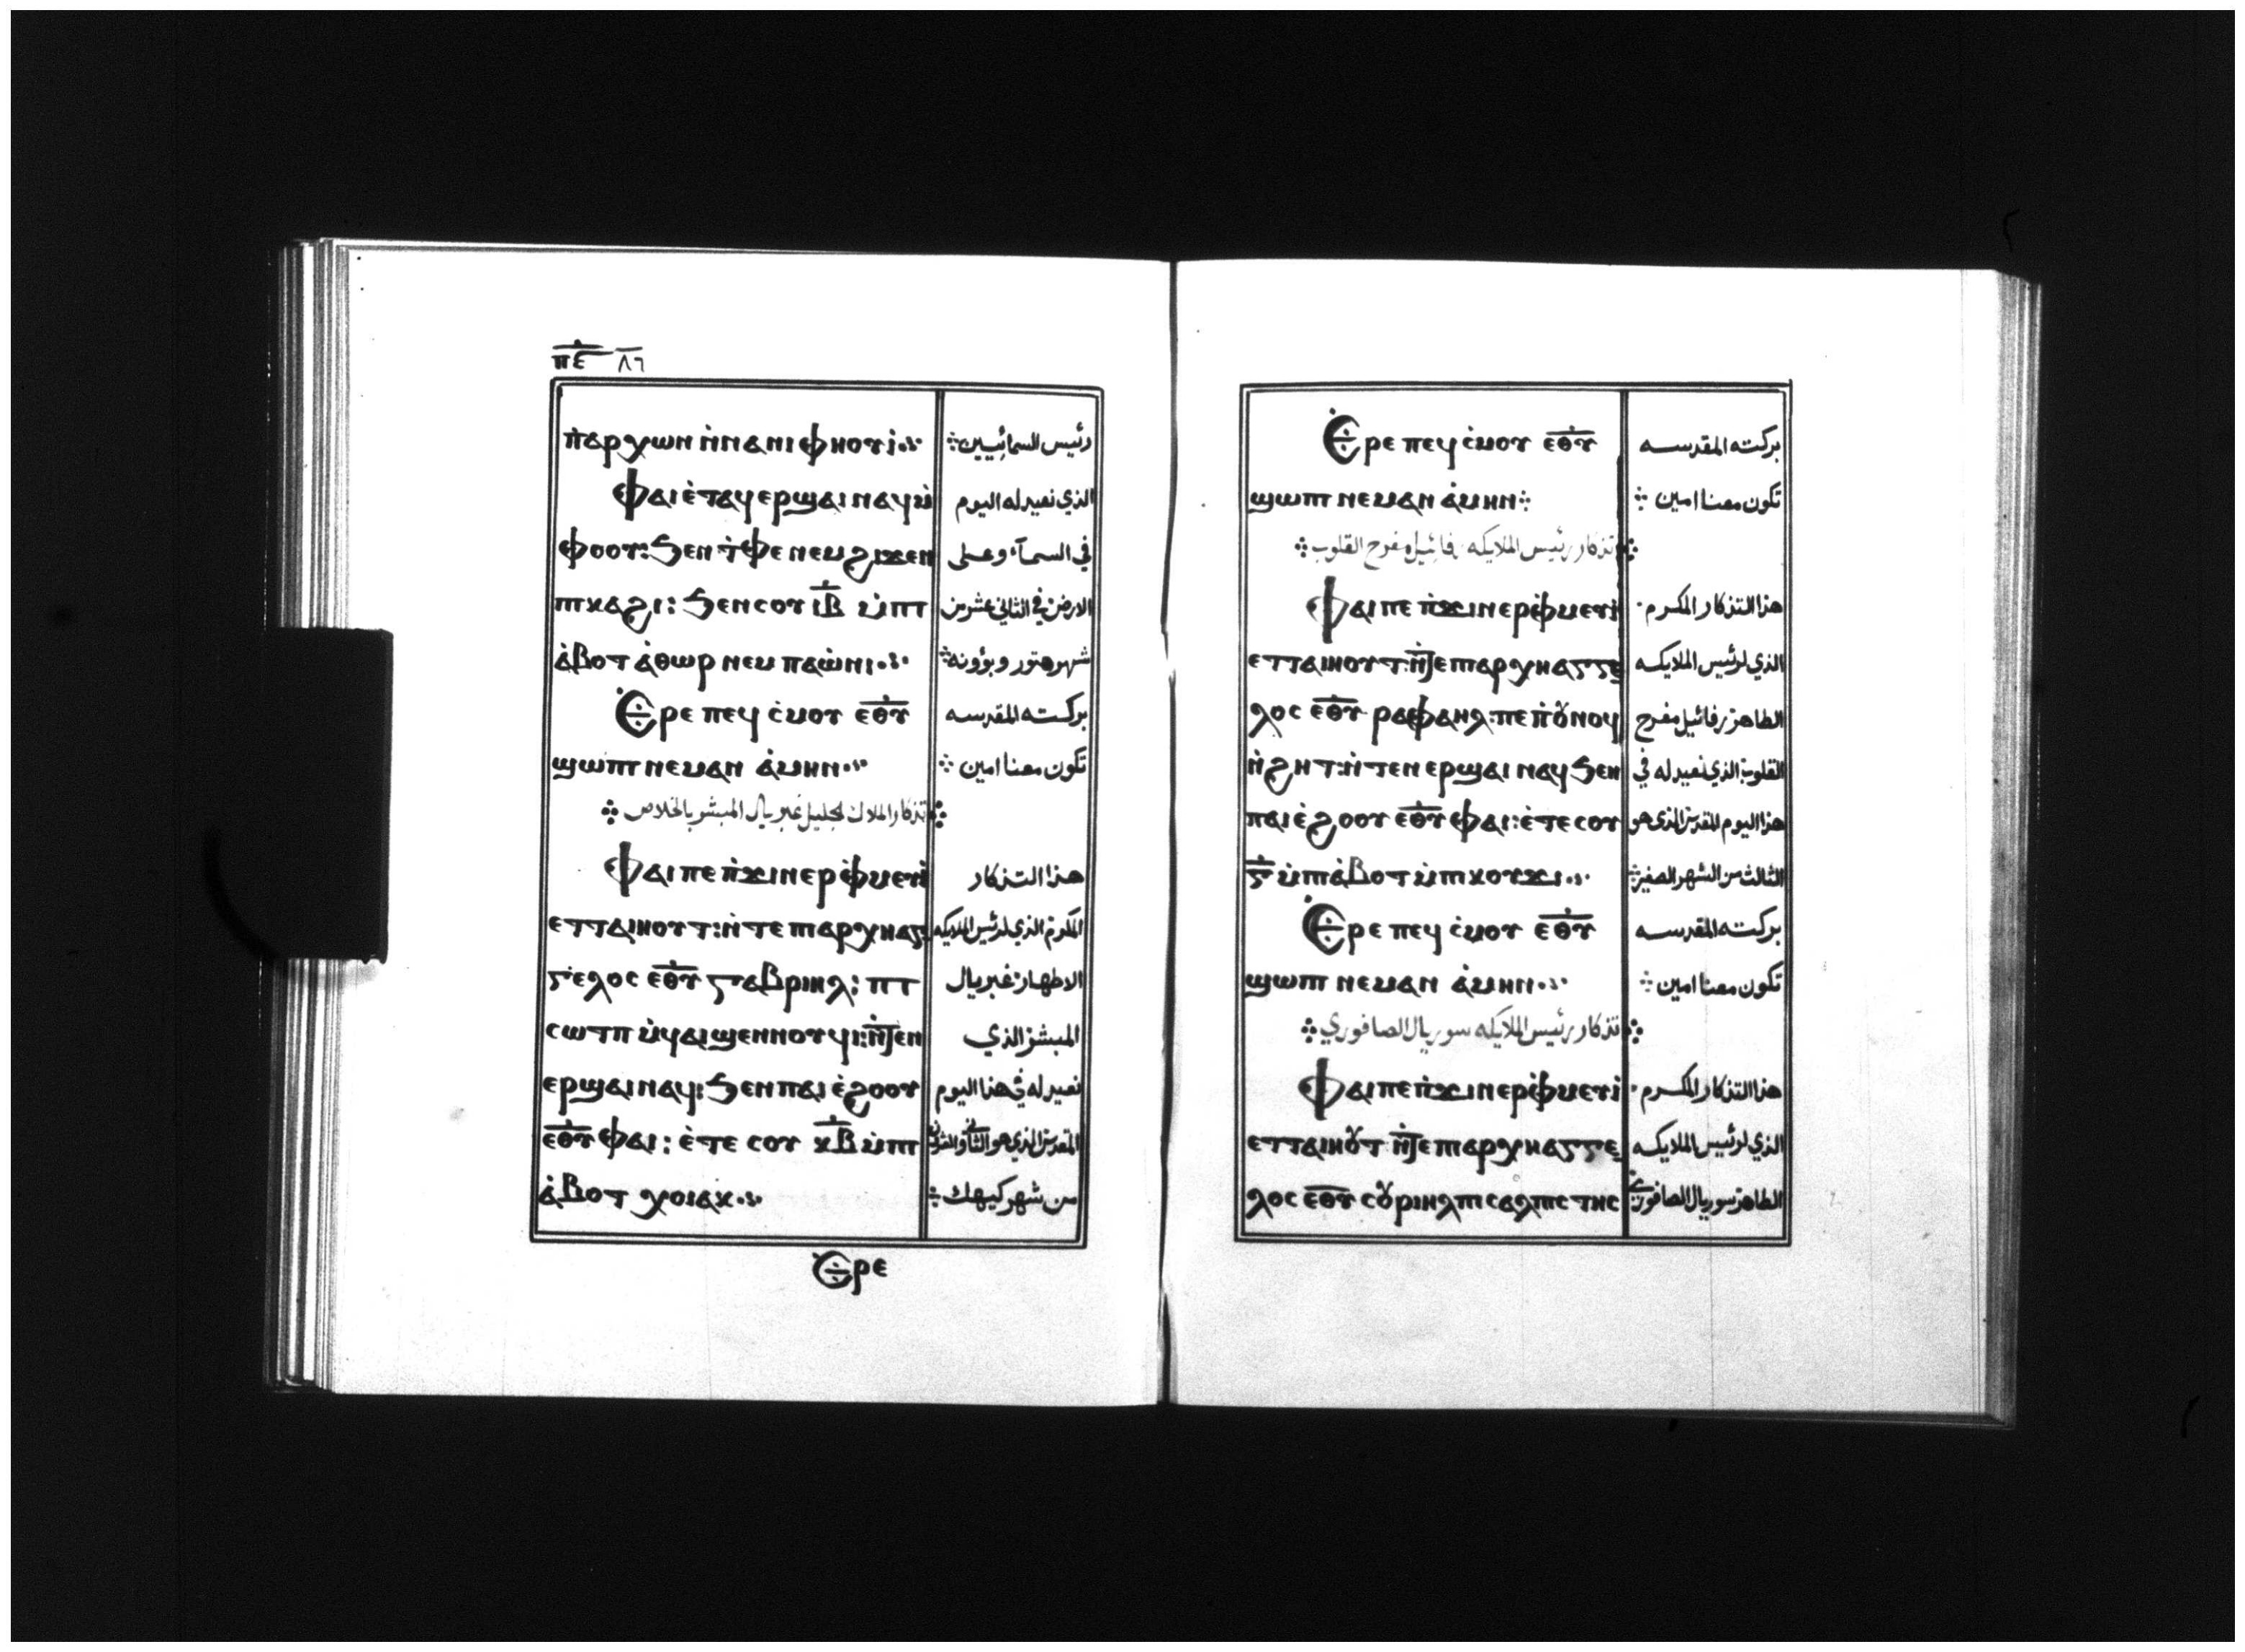 ⲡ̅ⲉ̅ ٨٦
ⲛ̀ⲁⲣⲭⲱⲛ ⲛ̀ⲛⲁⲛⲓⲫⲏⲟⲩⲓ̀ رئيس السمائيين
ⲫⲁⲓ ⲉ̀ⲧⲁϥⲉⲣϣⲁⲓ ⲛⲁϥ ⲙ̀ الذي نعيد له اليوم
ⲫⲟⲟⲩ: ϧⲉⲛ ⲧ̀ⲫⲉ ⲛⲉⲙ ϩⲓϫⲉⲛ في السمآء وعلى
ⲡⲕⲁϩⲓ: ϧⲉⲛ ⲥⲟⲩ ⲓ̅ⲃ̅ ⲙ̀ⲡⲓ الارض في الثاني عشر من
ⲁ̀ⲃⲟⲧ ⲁ̀ⲑⲱⲣ ⲛⲉⲙ ⲡⲁⲱ̀ⲛⲓ شهر هتور وبؤونه
ⲉ̀ⲣⲉ ⲡⲉϥ ⲥ̀ⲙⲟⲩ ⲉ̅ⲑ̅ⲩ̅ بركته المقدسه
ϣⲱⲡⲓ ⲛⲉⲙⲁⲛ ⲁ̀ⲙⲏⲛ تكون معنا امين
تذكار الملاك الجليل غبريال المبشر بالخلاص
ⲫⲁⲓ ⲡⲉ ⲡ̀ϫⲓⲛⲉⲣⲫ̀ⲙⲉⲩⲓ̀ هذا التذكار
ⲉⲧⲧⲁⲓⲏⲟⲩⲧ: ⲛ̀ⲧⲉ ⲡⲓⲁⲣⲭⲏⲁⲅ المكرم الذي لرئيس الملايكه
ⲅⲉⲗⲟⲥ ⲉ̅ⲑ̅ⲩ̅ ⲅⲁⲃⲣⲓⲏⲗ: ⲡⲓ الاطهار غبريال
ⲥⲱⲧⲡ ⲙ̀ϥⲁⲓϣⲉⲛⲛⲟⲩϥⲓ: ⲛ̀ⲧⲉⲛ المبشر الذي
ⲉⲣϣⲁⲓ ⲛⲁϥ: ϧⲉⲛ ⲡⲁⲓ ⲉ̀ϩⲟⲟⲩ نعيد له في هذا اليوم
ⲉ̅ⲑ̅ⲩ̅ ⲫⲁⲓ: ⲉ̀ⲧⲉ ⲥⲟⲩ ⲕ̅ⲃ̅ ⲙ̀ⲡⲓ المقدس الذي هو الثاني والعشرين
ⲁ̀ⲃⲟⲧ ⲭⲟⲓⲁⲕ من شهر كيهك
ⲉ̀ⲣⲉ
ⲉ̀ⲣⲉ ⲡⲉϥ ⲥ̀ⲙⲟⲩ ⲉ̅ⲑ̅ⲩ̅ بركته المقدسه
ϣⲱⲡⲓ ⲛⲉⲙⲁⲛ ⲁ̀ⲙⲏⲛ تكون معنا امين
تذكار رئيس الملايكه رفائيل مفرح القلوب
ⲫⲁⲓ ⲡⲉ ⲡ̀ϫⲓⲛⲉⲣⲫ̀ⲙⲉⲩⲓ̀ هذا التذكار المكرم
ⲉⲧⲧⲁⲓⲏⲟⲩⲧ: ⲛ̀ⲧⲉ ⲡⲓⲁⲣⲭⲏⲁⲅⲅⲉ الذي لرئيس الملايكه
ⲗⲟⲥ ⲉ̅ⲑ̅ⲩ̅ ⲣⲁⲫⲁⲏⲗ: ⲡⲉⲡ̀ⲟⲩⲛⲟϥ الطاهر رفائيل مفرح
ⲛ̀ϩⲏⲧ: ⲛ̀ⲧⲉⲛⲉⲣϣⲁⲓ ⲛⲁϥ ϧⲉⲛ القلوب الذي نعيد له في
ⲡⲁⲓ ⲉ̀ϩⲟⲟⲩ ⲉ̅ⲑ̅ⲩ̅ ⲫⲁⲓ: ⲉ̀ⲧⲉ ⲥⲟⲩ هذا اليوم المقدس الذي هو
ⲅ̅ ⲙ̀ⲡⲓⲁ̀ⲃⲟⲧ ⲙ̀ⲡⲓⲕⲟⲩϫⲓ الثالث من الشهر الصغير
ⲉ̀ⲣⲉ ⲡⲉϥ ⲥ̀ⲙⲟⲩ ⲉ̅ⲑ̅ⲩ̅ بركته المقدسه
ϣⲱⲡⲓ ⲛⲉⲙⲁⲛ ⲁ̀ⲙⲏⲛ تكون معنا امين
تذكار رئيس الملايكه سوريال الصافوري
ⲫⲁⲓ ⲡⲉ ⲡ̀ϫⲓⲛⲉⲣⲫ̀ⲙⲉⲩⲓ̀ هذا التذكار المكرم
ⲉⲧⲧⲁⲓⲏⲟⲩⲧ ⲛ̀ⲧⲉ ⲡⲓⲁⲣⲭⲏⲁⲅⲅⲉ الذي لرئيس الملايكه
ⲗⲟⲥ ⲉ̅ⲑ̅ⲩ̅ ⲥⲟⲩⲣⲓⲏⲗ ⲡⲓⲥⲁⲗⲡⲓⲥⲧⲏⲥ الطاهر سوريال الصافوري